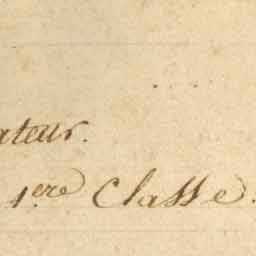 ateur.
1.ere Classe.